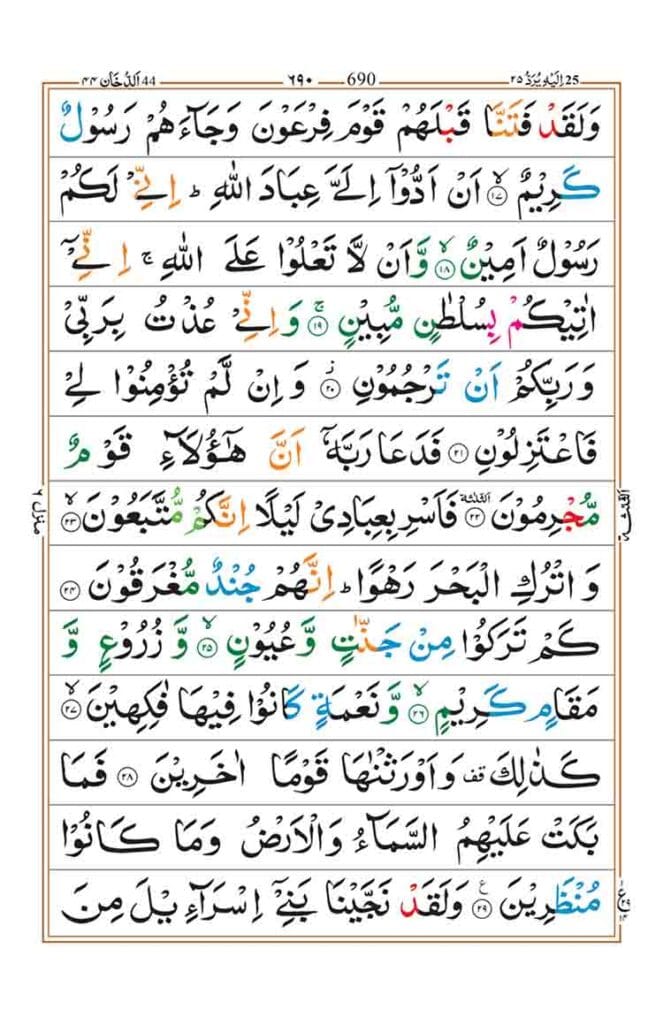 25 اِلَيْهِ يُرَدُّ ٢٥ 690 ٦٩٠ 44 اَلدُّخَان ٤٤
وَلَقَدْ فَتَنَّا قَبْلَهُمْ قَوْمَ فِرْعَوْنَ وَجَآءَهُمْ رَسُوْلٌ
كَرِيْمٌ ۙ﴿۱۷﴾ اَنْ اَدُّوْۤا اِلَيَّ عِبَادَ اللّٰهِ ؕ اِنِّيْ لَكُمْ
رَسُوْلٌ اَمِيْنٌ ۙ﴿۱۸﴾ وَّاَنْ لَّا تَعْلُوْا عَلَى اللّٰهِ ۚ اِنِّيْۤ
اٰتِيْكُمْ بِسُلْطٰنٍ مُّبِيْنٍ ۚ﴿۱۹﴾ وَاِنِّيْ عُذْتُ بِرَبِّيْ
وَرَبِّكُمْ اَنْ تَرْجُمُوْنِ ۫﴿۲۰﴾ وَاِنْ لَّمْ تُؤْمِنُوْا لِيْ
فَاعْتَزِلُوْنِ ﴿۲۱﴾ فَدَعَا رَبَّهٗۤ اَنَّ هٰٓؤُلَآءِ قَوْمٌ
مُّجْرِمُوْنَ ﴿۲۲﴾ الثلثة فَاَسْرِ بِعِبَادِيْ لَيْلًا اِنَّكُمْ مُّتَّبَعُوْنَ ۙ﴿۲۳﴾
وَاتْرُكِ الْبَحْرَ رَهْوًا ؕ اِنَّهُمْ جُنْدٌ مُّغْرَقُوْنَ ﴿۲۴﴾
كَمْ تَرَكُوْا مِنْ جَنّٰتٍ وَّعُيُوْنٍ ۙ﴿۲۵﴾ وَّزُرُوْعٍ وَّ
مَقَامٍ كَرِيْمٍ ۙ﴿۲۶﴾ وَّنَعْمَةٍ كَانُوْا فِيْهَا فٰكِهِيْنَ ۙ﴿۲۷﴾
كَذٰلِكَ قف وَاَوْرَثْنٰهَا قَوْمًا اٰخَرِيْنَ ﴿۲۸﴾ فَمَا
بَكَتْ عَلَيْهِمُ السَّمَآءُ وَالْاَرْضُ وَمَا كَانُوْا
مُنْظَرِيْنَ ﴿۲۹﴾ ع وَلَقَدْ نَجَّيْنَا بَنِيْۤ اِسْرَآءِيْلَ مِنَ
الثلثة
منزل ٦
ع